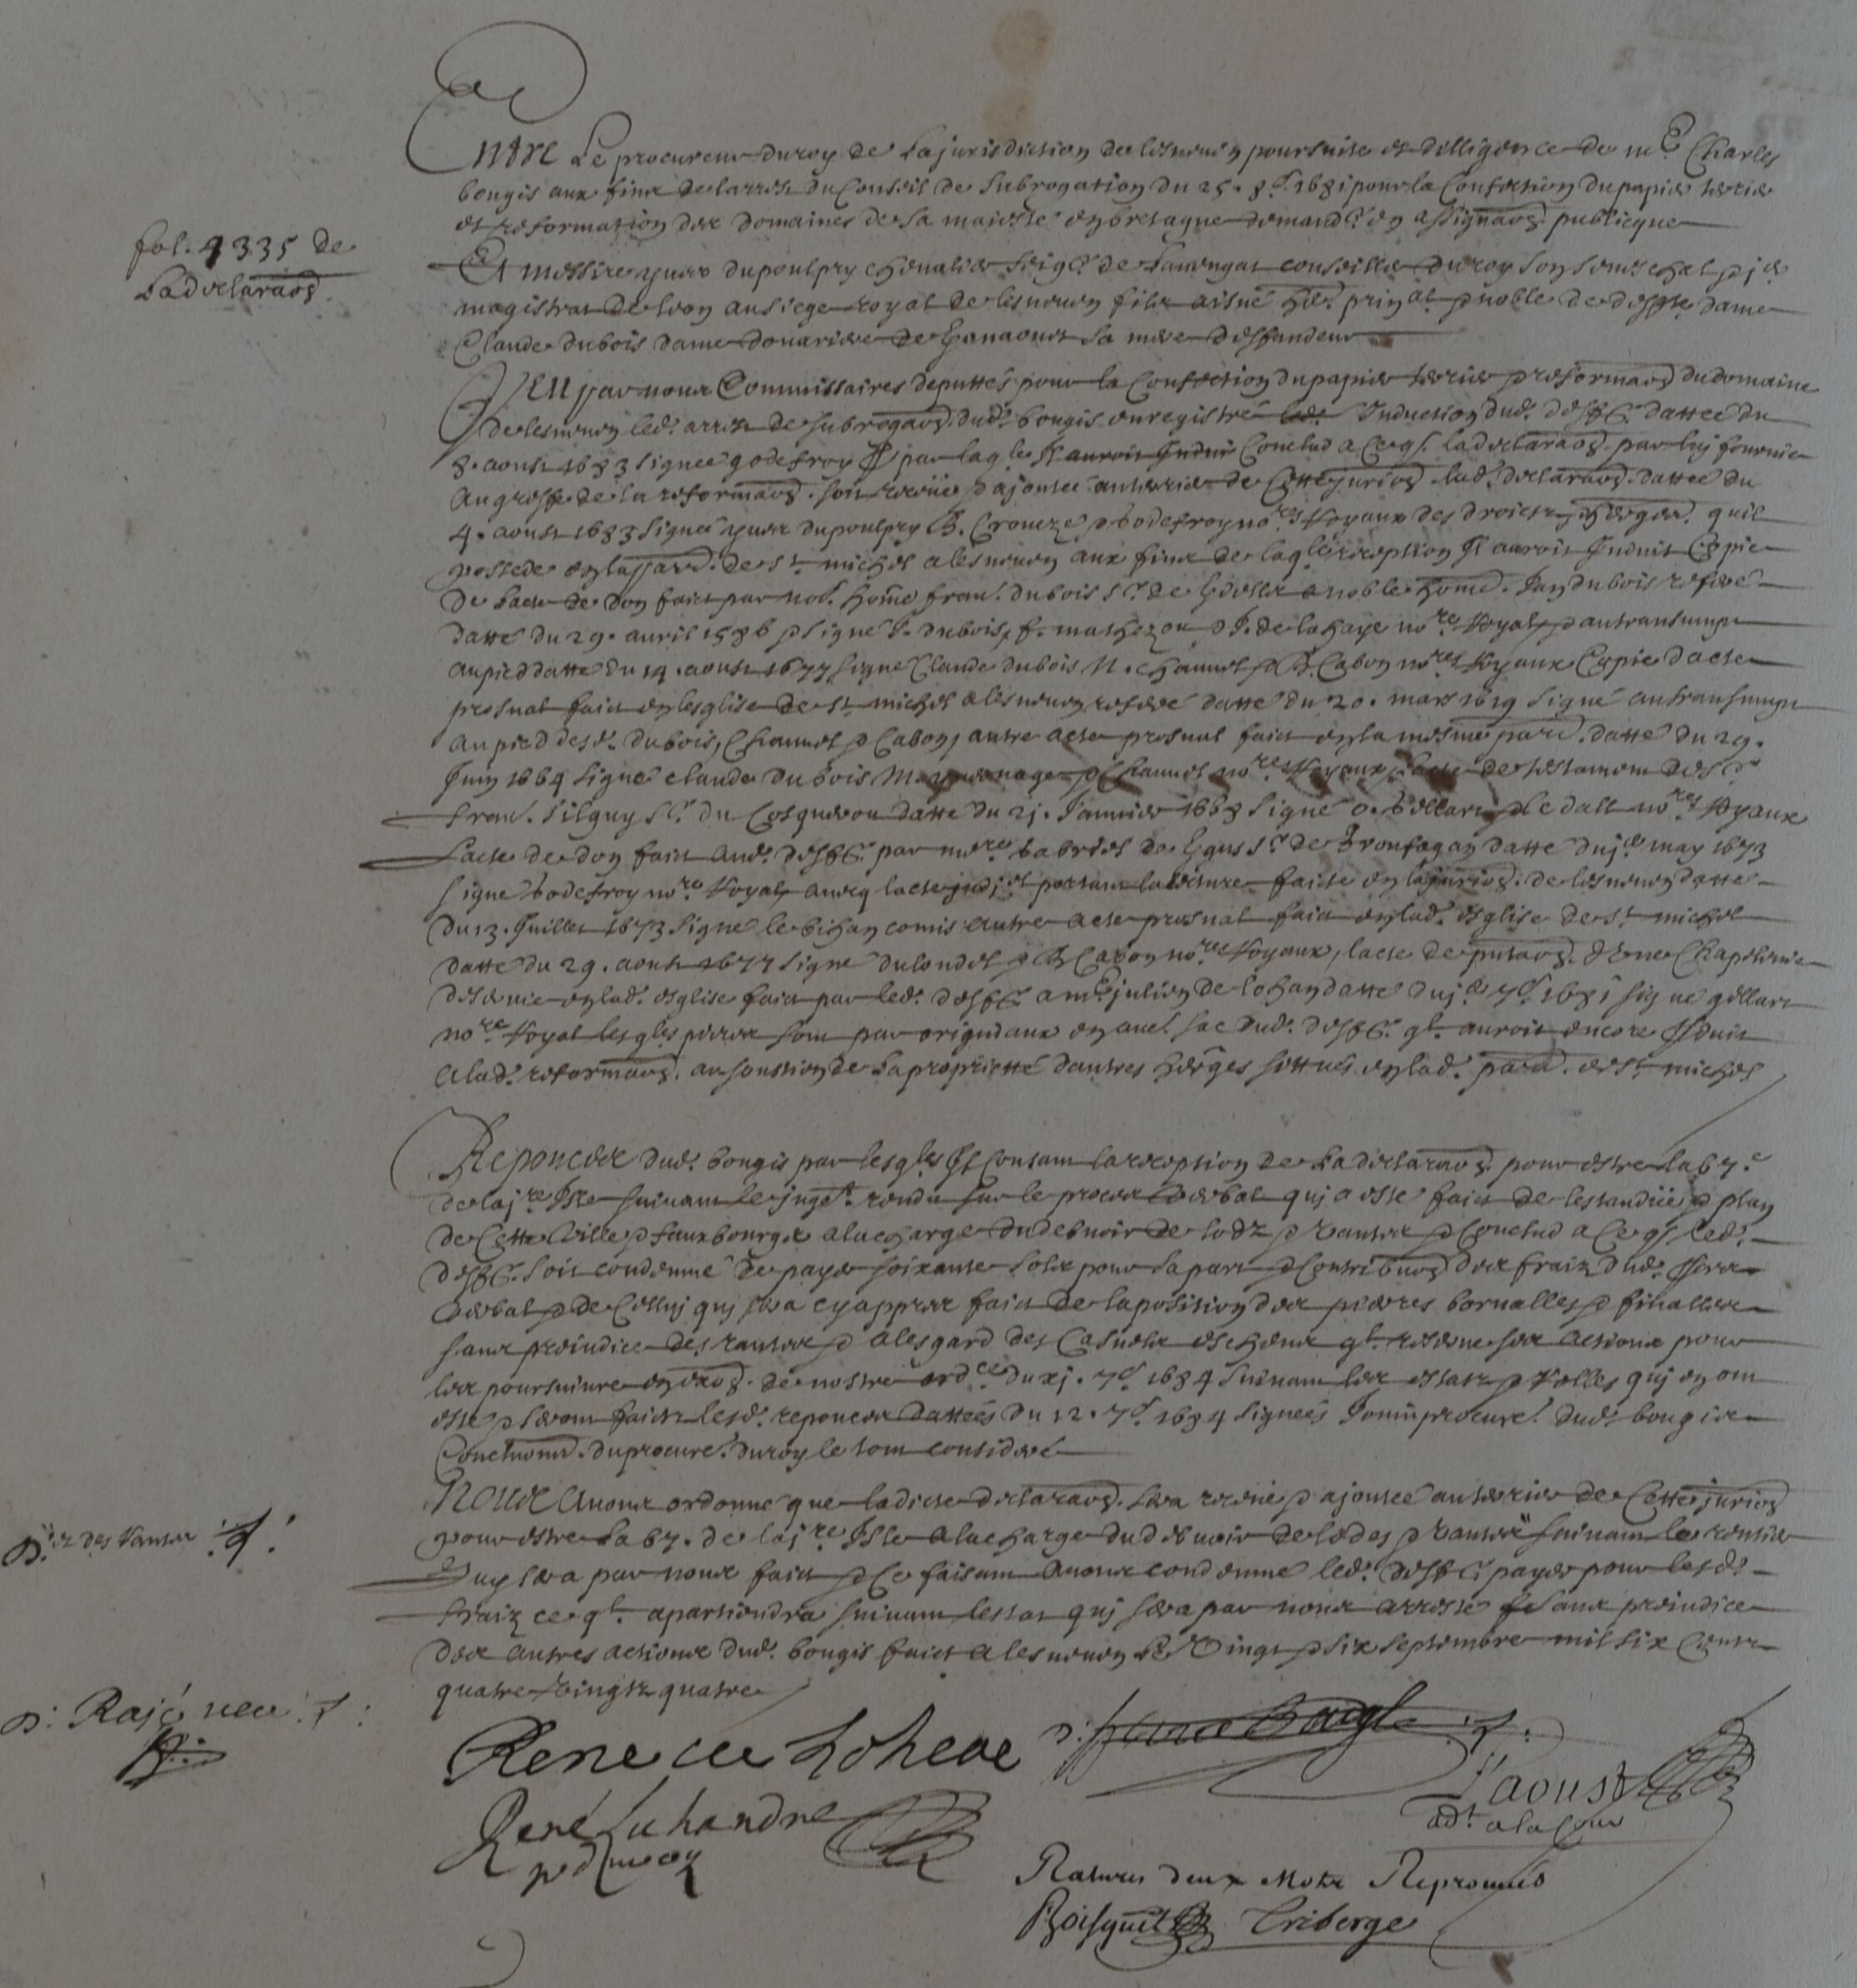 Entre Le procureur du roy de la jurisdiction de lesneuen poursuite et dilligence de me Charles
bougis aux fins de larrest du Conseil de subrogation du 25. 8.e 1681 pour la Confection du papier terrier
et reformation des domaines de sa majesté en bretagne demandr en assignaon publicque
fol. 4335 de
la declaraon
Et messire yues dupoulpry cheualier seigr de Lauengat conseiller du roy son seneschal p je
magistrat de leon au siege royal de lesneuen fils aisné her. prinal. & noble de deffte dame
Claude dubois dame douariere de sa mere deffandeur
Veu par nous Commissaires deputtés pour la Confection du papier terrier & reformaon du domaine
de lesneuen led. arrest de subrogaon. dud. bougis enregistré Induction dud. deffr. dattee du
8. aoust 1683 signee godefroy par lagle Il auroit Conclud a Ce q. la declaraon. par luy fournie
au greffe de la reformaon. soit receüe & ajoutee au terrier de Cette jurion lad. declaraon. dattee du
4. aoust 1683 signee yues dupoulpry & godefroy nores Royaux des droicts & herges. quil
possede en la parr. de st. michel a lesneuen aux fins de lagle reception Il auroit Induit Coppie
de lacte de don faict par nob. home fran. dubois sr. de a noble home. Jan dubois referé
datte du 29. auril 1586 & signé J. dubois, f. & J. de la haye nore Royal, & au transumpt
au pied datte du 14. aoust 1677 signé Claude dubois N. chauuel & Cabon nores Royaux Coppie dacte
prosnal faict en lesglise de st. michel a lesneuen referé datte du 20. mars 1619 signé au transumpt
au pied desd. dubois, Chauuel & Cabon, autre acte prosnal faict en la mesme parr. datté du 29.
Juin 1664 signé claude dubois M. & Chauuel nores Royaux lacte de testament desd.
fran. silguy sr. du Cosquerou datte du 21. Januier 1668 signé o. gellart & Le dall nores Royaux
Lacte de don faict aud. deffr. par mere gabriel de sr de Tronfagan datte du je may 1673
signé godefroy nore Royal, auecq lacte judjel portant lecture faicte en la jurion. de lesneuen datte
du 13. Juillet 1673 signé le bihan comis autre acte prosnal faict en lad. esglise de st michel
datte du 29. aoust 1677 signé & Cabon nores Royaux, lacte de d'une Chapelenie
deseruie en lad. esglise faict par led. deffr. a me julien de lohan datte du je 7e. 1681 signé gellart
nore Royal lesqles pieces sont par originaux en auel sac dud. deffr. ql. auroit encore Induit
a lad. reformaon. au soustien de la propriette dautres herges sittués en lad. parr. de st. michel
Reponces dud. bougis par lesqles Il Consant la reception de la declaraon. pour estre la 67.e
de la jre Isle suiuant le juget. rendu sur le proces Verbal qui a esté faict de lestandüe & plan
de Cette Ville & fauxbourgs a la charge du debuoir de lodz & Vantes & Conclud a Ce q. led.
deffr. soit condemné de payer soixante solz pour sa part & Contribuon des fraiz dud. proces
Verbal & de Celluy qui sera cy appres faict de la position des pierres bornalles & finallere
sans preiudice des rantes & a lesgard des Casuels escheus ql. reserue ses actions pour
les poursuiure en exeon. de nostre ordce du xj. 7e. 1684 suiuant les estatz & Rolles qui en ont
esté & seront faicts lesd. reponces dattées du 12. 7e. 1684 signeés procure. dud. bougis
Conclusions. du procure. du roy le tout considéré
Nous Auons ordonné que ladicte declaraon. sera receüe & ajoutee au terrier de Cette jurion
pour estre la 67. de la jre Isle a la charge du debuoir de lodes & Vantes suiuant le rentier
D. des Vantes
Quy sera par nous faict & Ce faisant Auons condemné led. deffr. payer pour lesd.
fraiz ce ql. apartiendra suiuant lestat qui sera par nous arresté sans preiudice
des autres actions dud. bougis faict a lesneuen Le Vingt & six septembre mil six Cents
quatre Vingtz quatre
D: Rajé
Rene de Loheac
René Lu handre
pr du roy
Laoust
adt. a la Cour
Ratures deux Mots Reprouués
Boisguet Triberge